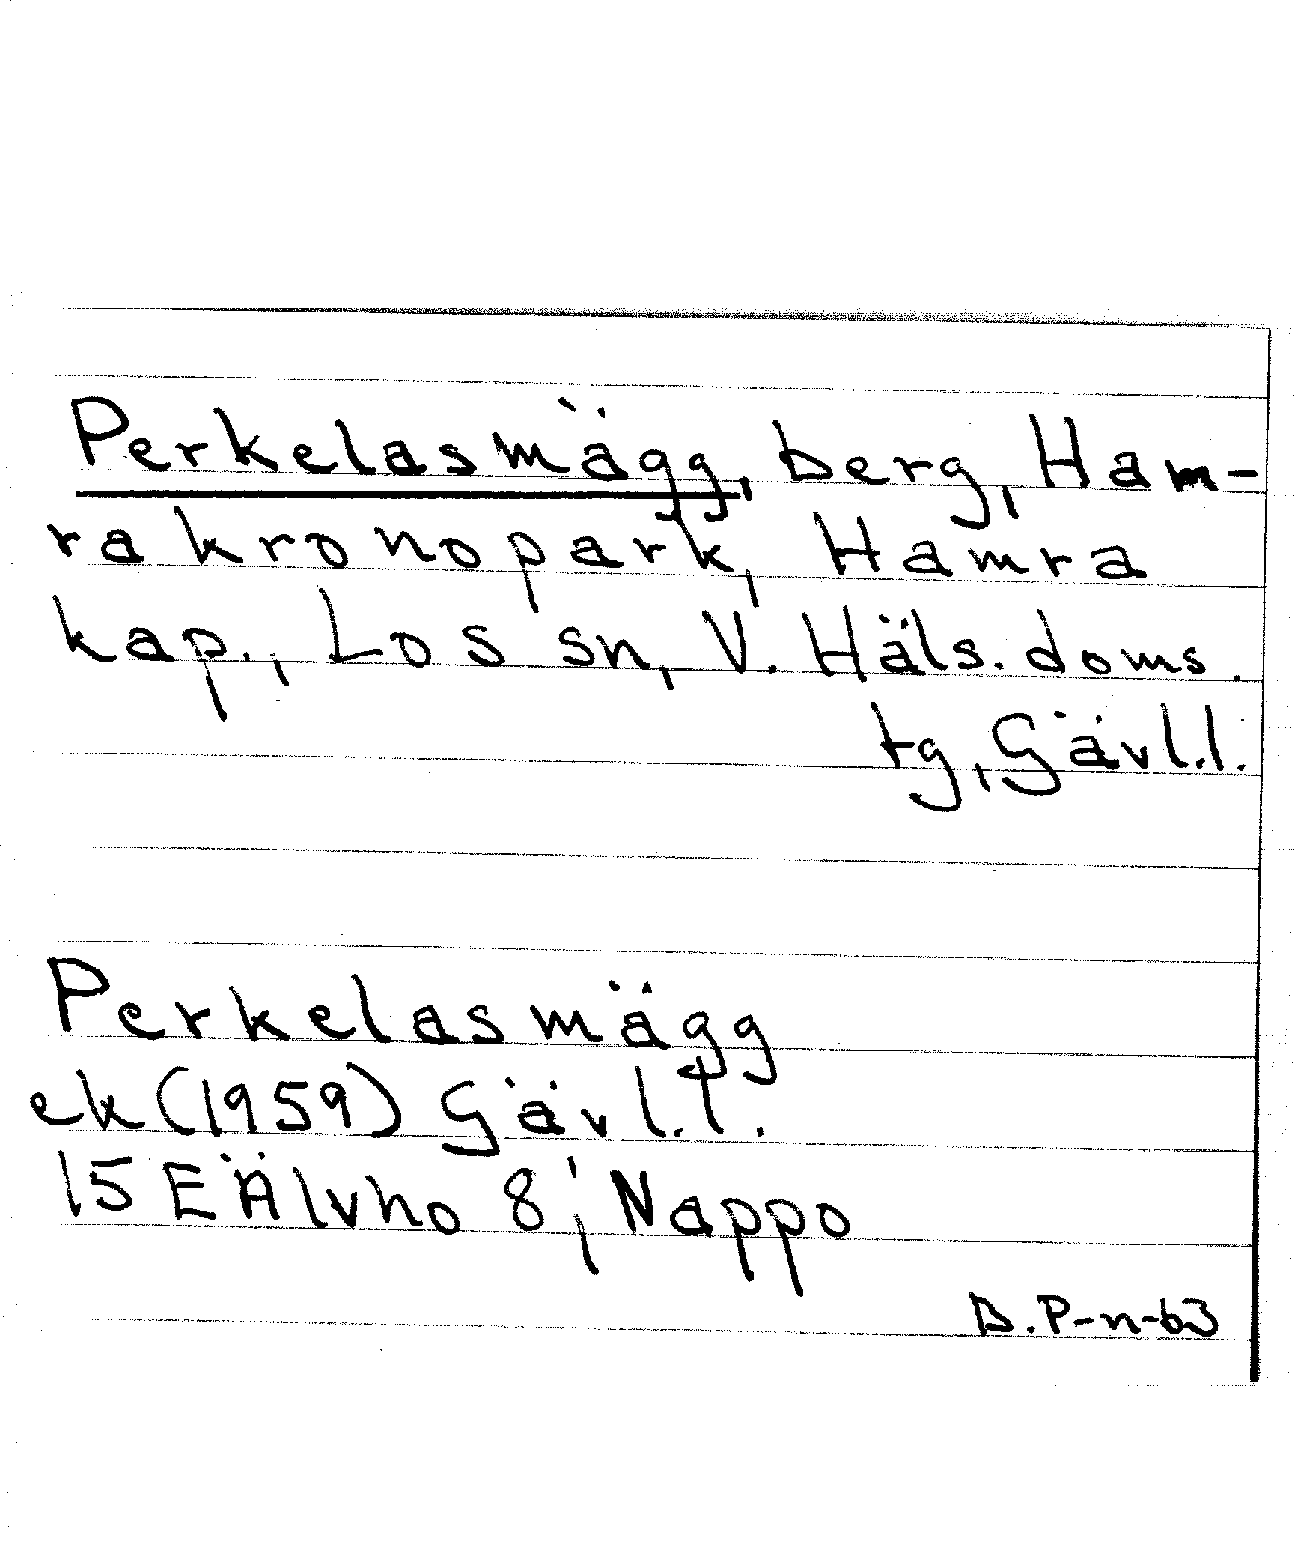 Perkelasmägg, berg, Ham-
ra kronopark, Hamra
kap., Los sn, V. Häls. doms.
tg, Gävl.l.
Perkelasmägg
ek (1959) Gävl.l.
15 E Älvho 8; Nappo
D.P-n-63